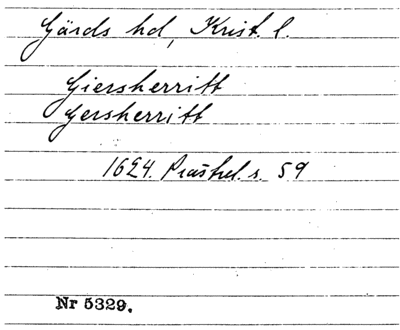 Gärds hd, Krist. l.
Giersherritt
Gersherritt
1624. s. 59
Nr 5329.